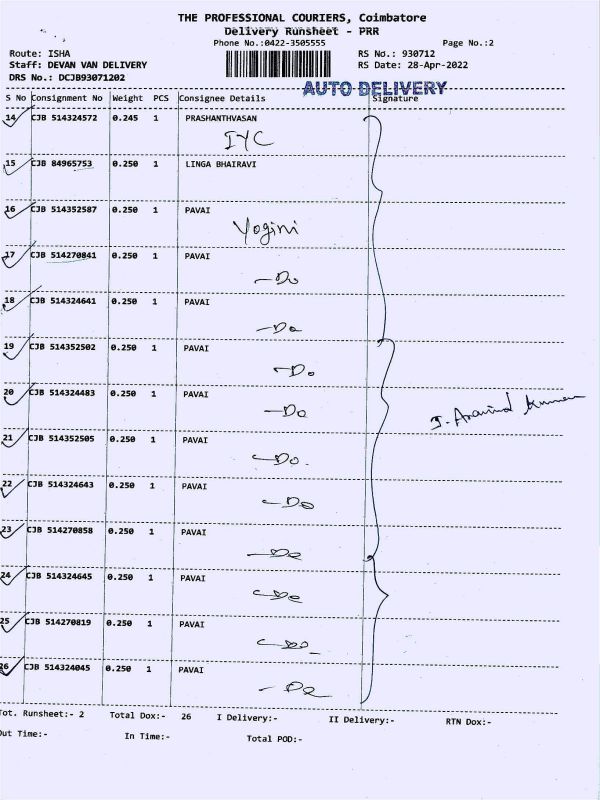 THE PROFESSIONAL COURIERS, Coimbatore
Delivery Runsheet - PRR
Phone No.:0422-3505555 Page No.:2
Route: ISHA RS No.: 930712
Staff: DEVAN VAN DELIVERY RS Date: 28-Apr-2022
DRS No.: DCJB93071202
AUTO DELIVERY
S No Consignment No Weight PCS Consignee Details Signature
14 CJB 514324572 0.245 1 PRASHANTHVASAN
IYC
15 CJB 84965753 0.250 1 LINGA BHAIRAVI
16 CJB 514352587 0.250 1 PAVAI
Yogini
17 CJB 514270841 0.250 1 PAVAI
-Do
18 CJB 514324641 0.250 1 PAVAI
-Do
19 CJB 514352502 0.250 1 PAVAI
-Do
20 CJB 514324483 0.250 1 PAVAI
-Do
J. Aravind Kumar
21 CJB 514352505 0.250 1 PAVAI
-Do.
22 CJB 514324643 0.250 1 PAVAI
-Do
23 CJB 514270858 0.250 1 PAVAI
-Do
24 CJB 514324645 0.250 1 PAVAI
-Do
25 CJB 514270819 0.250 1 PAVAI
-Do
26 CJB 514324045 0.250 1 PAVAI
-Do
Tot. Runsheet:- 2 Total Dox:- 26 I Delivery:- II Delivery:- RTN Dox:-
Out Time:- In Time:- Total POD:-